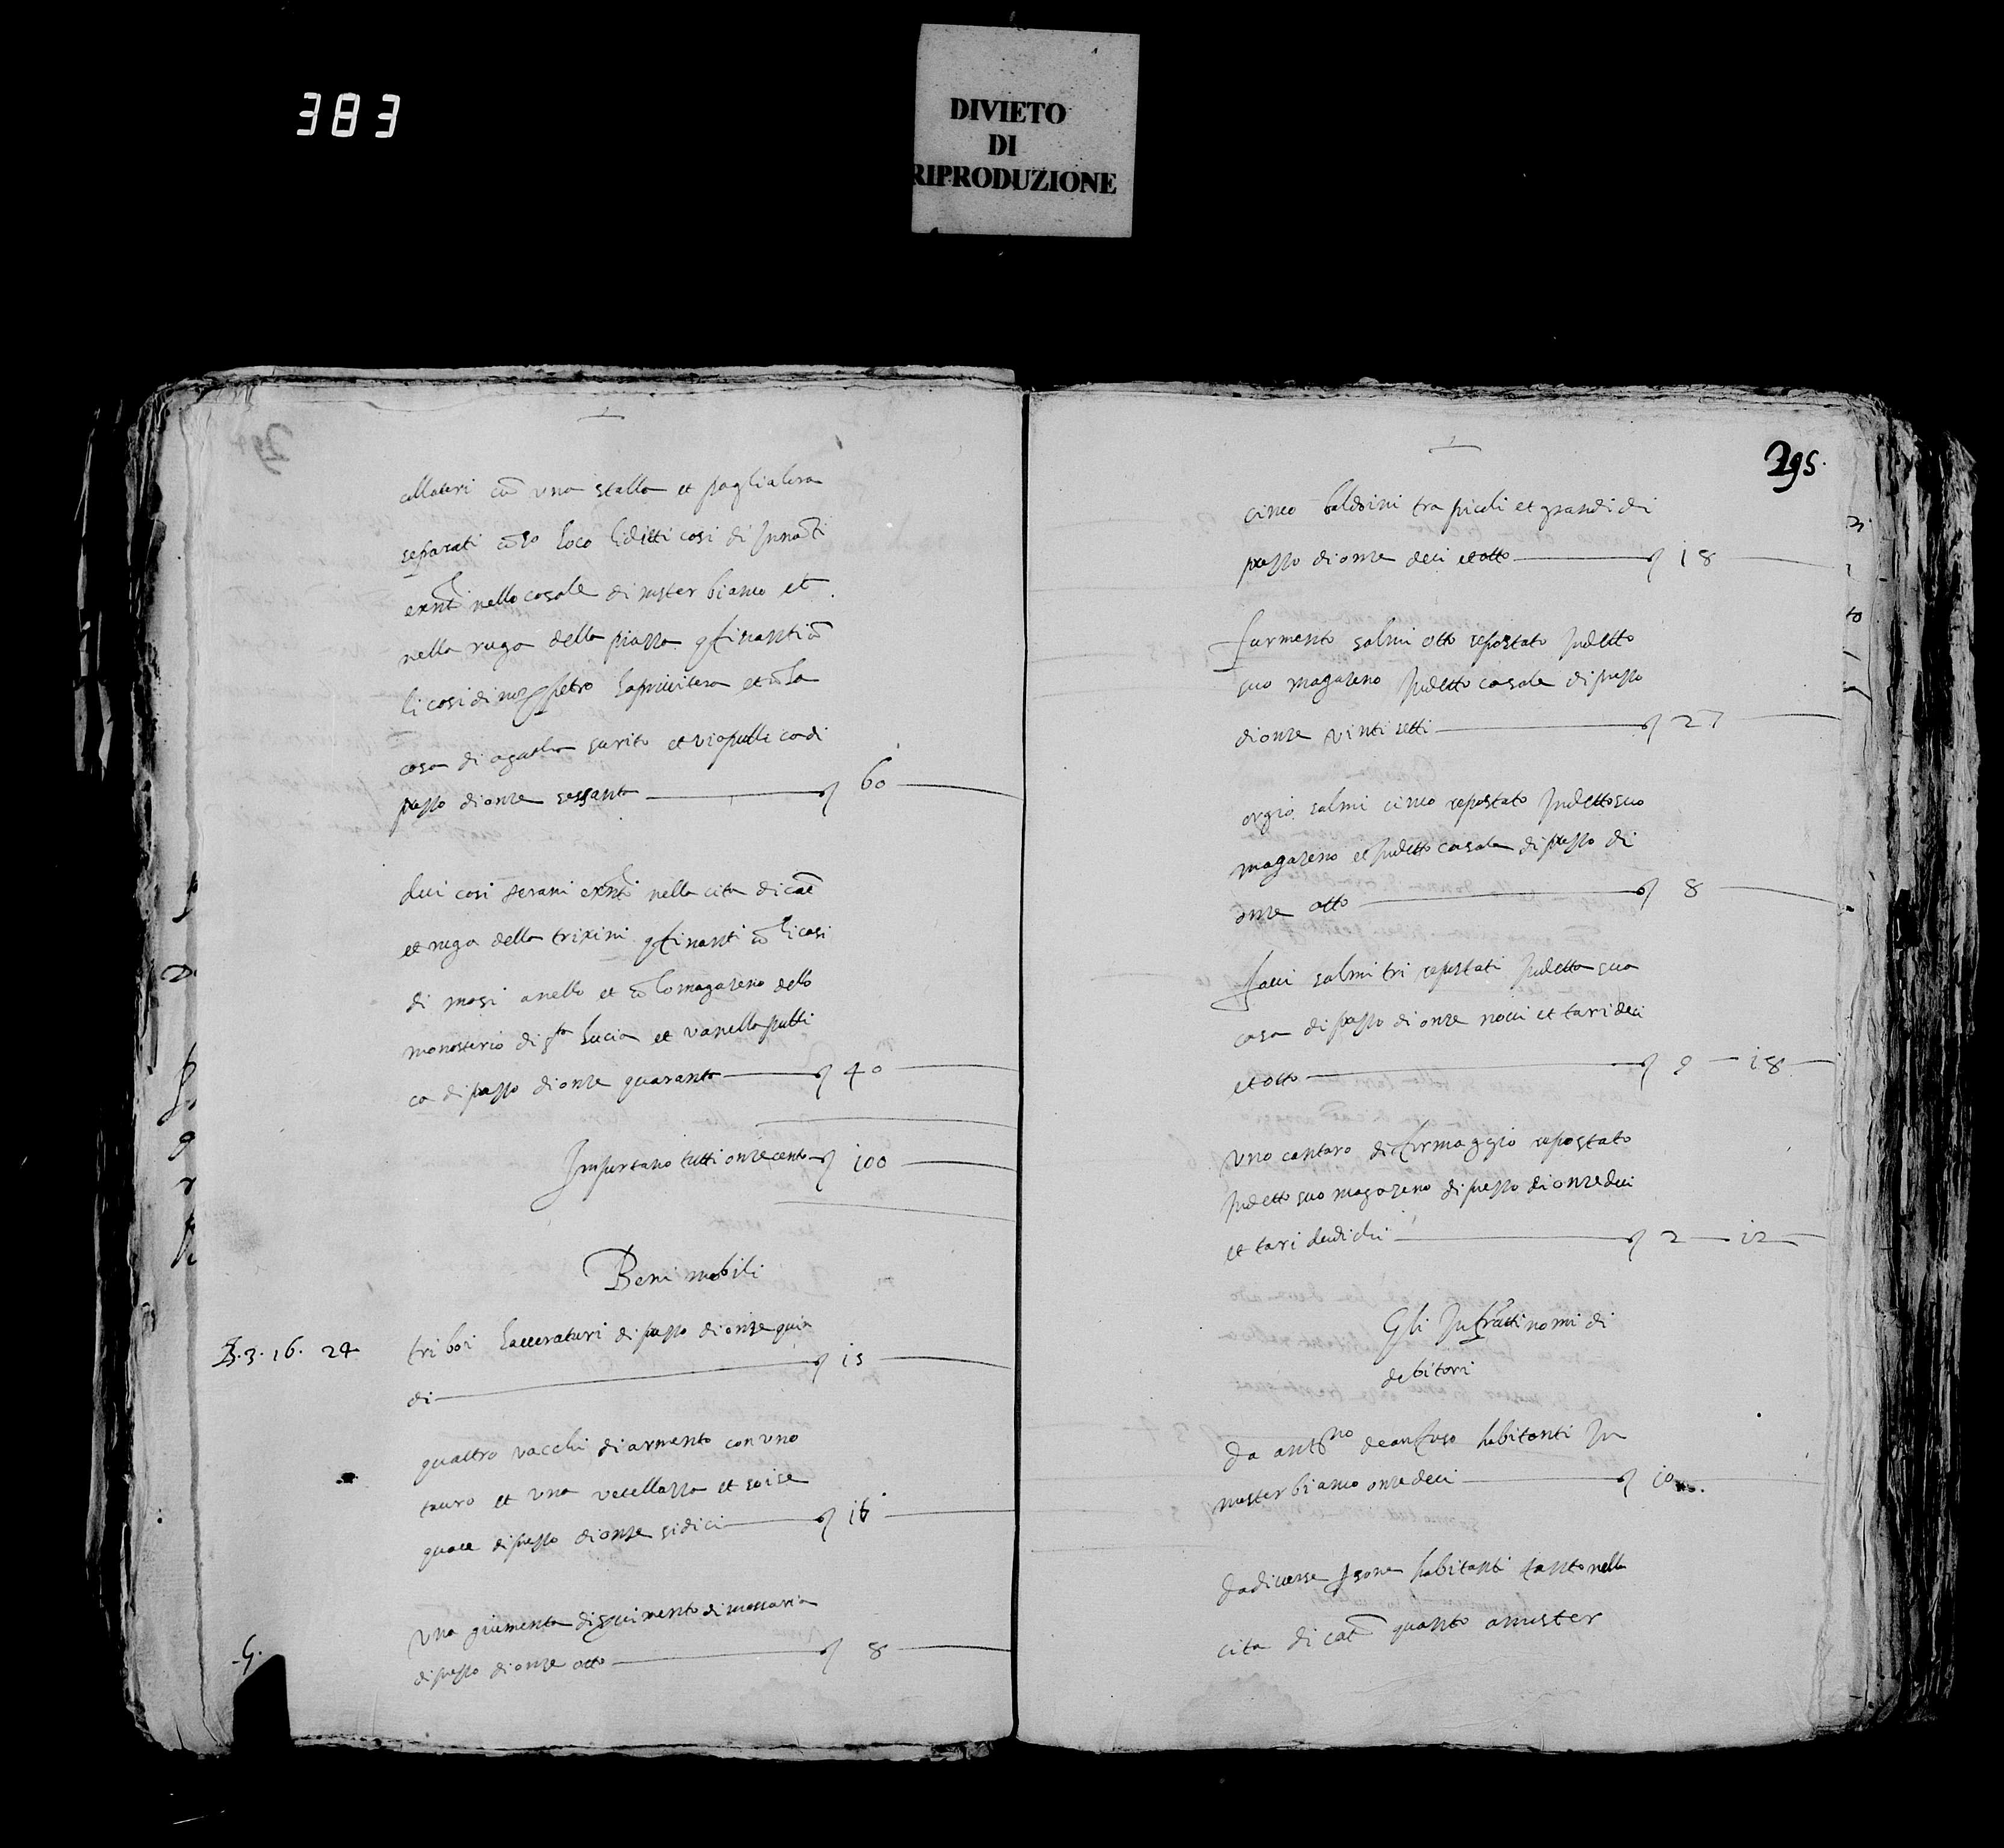 383
DIVIETO
DI
RIPRODUZIONE
cellateri cō una stalla et paglialora
separati cō so loco li ditti cosi di Innāti
exnti nello casale di mister bianco et
nella ruga della piazza cōfinanti cō
li cosi di petro laprivitera et cō la
casa di agatha surito et via pubblica di
prezzo di onze sessanta — 60
dui cosi terrani exnti nella cita di cat
et ruga della trixini cōfinanti cō li casi
di masi anello et cō lo magazeno dello
monasterio di sta lucia et vanella pubbli
ca di prezzo di onze quaranta — 40
Importano tutti onze cento — 100
Beni mobili
3. 16. 24
tri boi lavuraturi di prezzo di onze quin
di — 15
quattro vacchi di armento con uno
tauro et una vitellazza et
di prezzo di onze sidici — 16
una giumenta di siguimento di massaria
di prezzo di onze otto — 8
295.
cinco baldoini tra piculi et grandi di
prezzo di onze deci et otto — 18
furmento salmi otto repostato Indetto
suo magazeno Indetto casale di prezzo
di onze vinti setti — 27
orgio salmi cinco repostato Indetto suo
magazeno et Indetto casale di prezzo di
onze otto — 8
favi salmi tri repostati Indetta sua
casa di prezzo di onze novi et tari deci
et otto — 9 — 18
uno cantaro di furmaggio repostato
Indetto suo magazeno di prezzo di onze dui
et tari dudichi — 2 — 12
Gli Infratti nomi di
debitori
Da antno de anfuso habitanti In
muster bianco onze deci — 10
Da diverse psone habitanti tanto nella
cita di cat quanto a muster